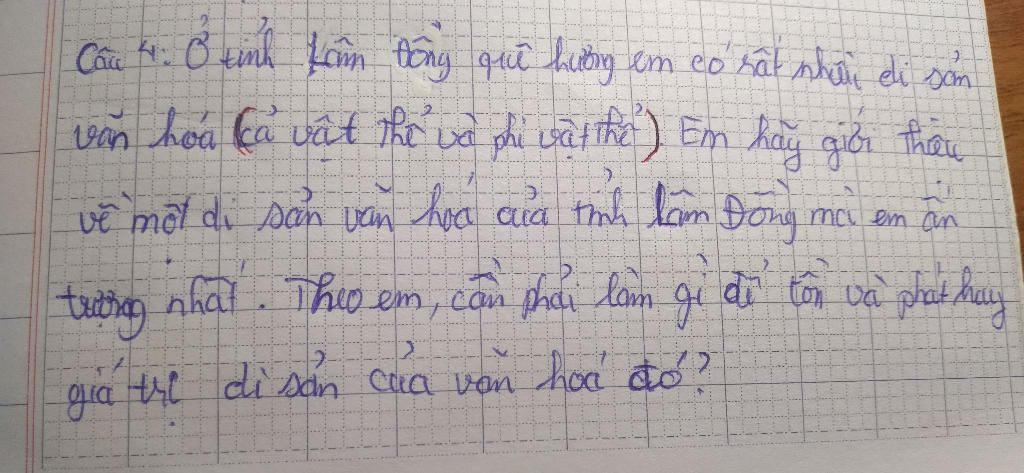 Câu 4: Ở tỉnh Lâm Đồng quê hương em có rất nhiều di sản
văn hoá (cả vật thể và phi vật thể). Em hãy giới thiệu
về một di sản văn hoá của tỉnh Lâm Đồng mà em ấn
tượng nhất. Theo em, cần phải làm gì để tồn và phát huy
giá trị di sản của văn hoá đó?